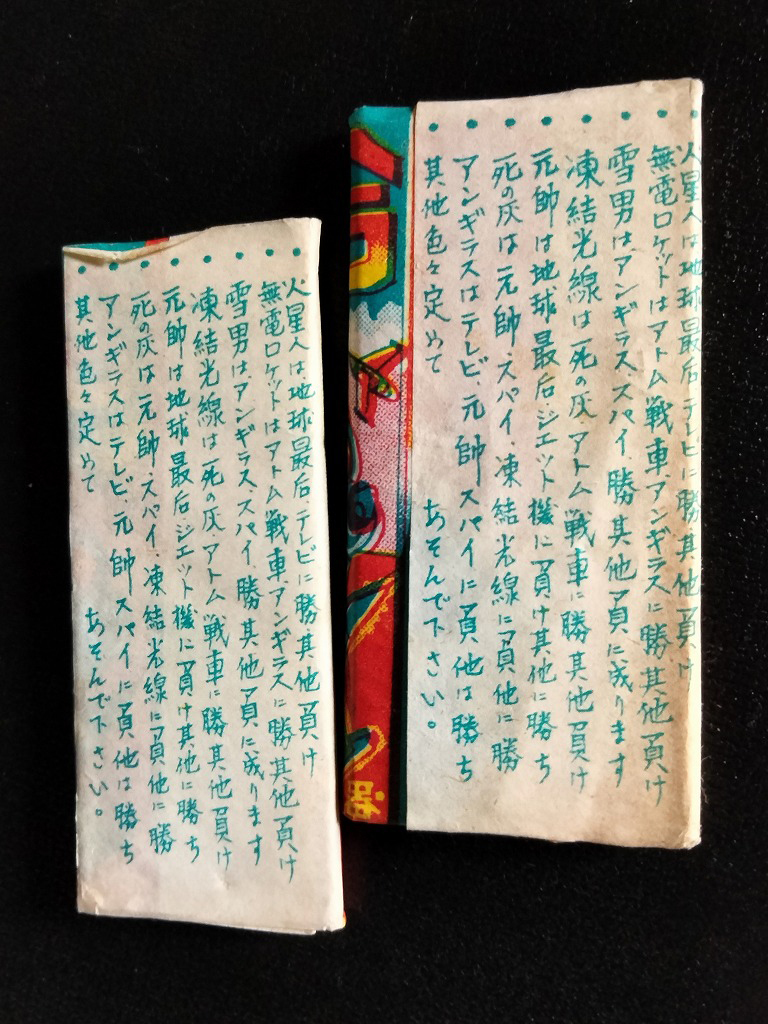 火星人は地球最后テレビに勝其他負け
無電ロケットはアトム戦車アンギラスに勝其他負け
雪男はアンギラス、スパイ、勝其他負に成ります
凍結光線は死の灰、アトム戦車に勝其他負け
元帥は地球最后ジェット機に負け其他に勝ち
死の灰は元帥、スパイ、凍結光線に負他に勝
アンギラスはテレビ、元帥スパイに負他は勝ち
其他色々定めて　あそんで下さい。
火星人は地球最后テレビに勝其他負け
無電ロケットはアトム戦車、アンギラスに勝其他負け
雪男はアンギラス、スパイ、勝其他負に成ります
凍結光線は死の灰、アトム戦車に勝其他負け
元帥は地球最后ジェット機に負け其他に勝ち
死の灰は元帥、スパイ、凍結光線に負他に勝
アンギラスはテレビ、元帥スパイに負他は勝ち
其他色々定めて　あそんで下さい。